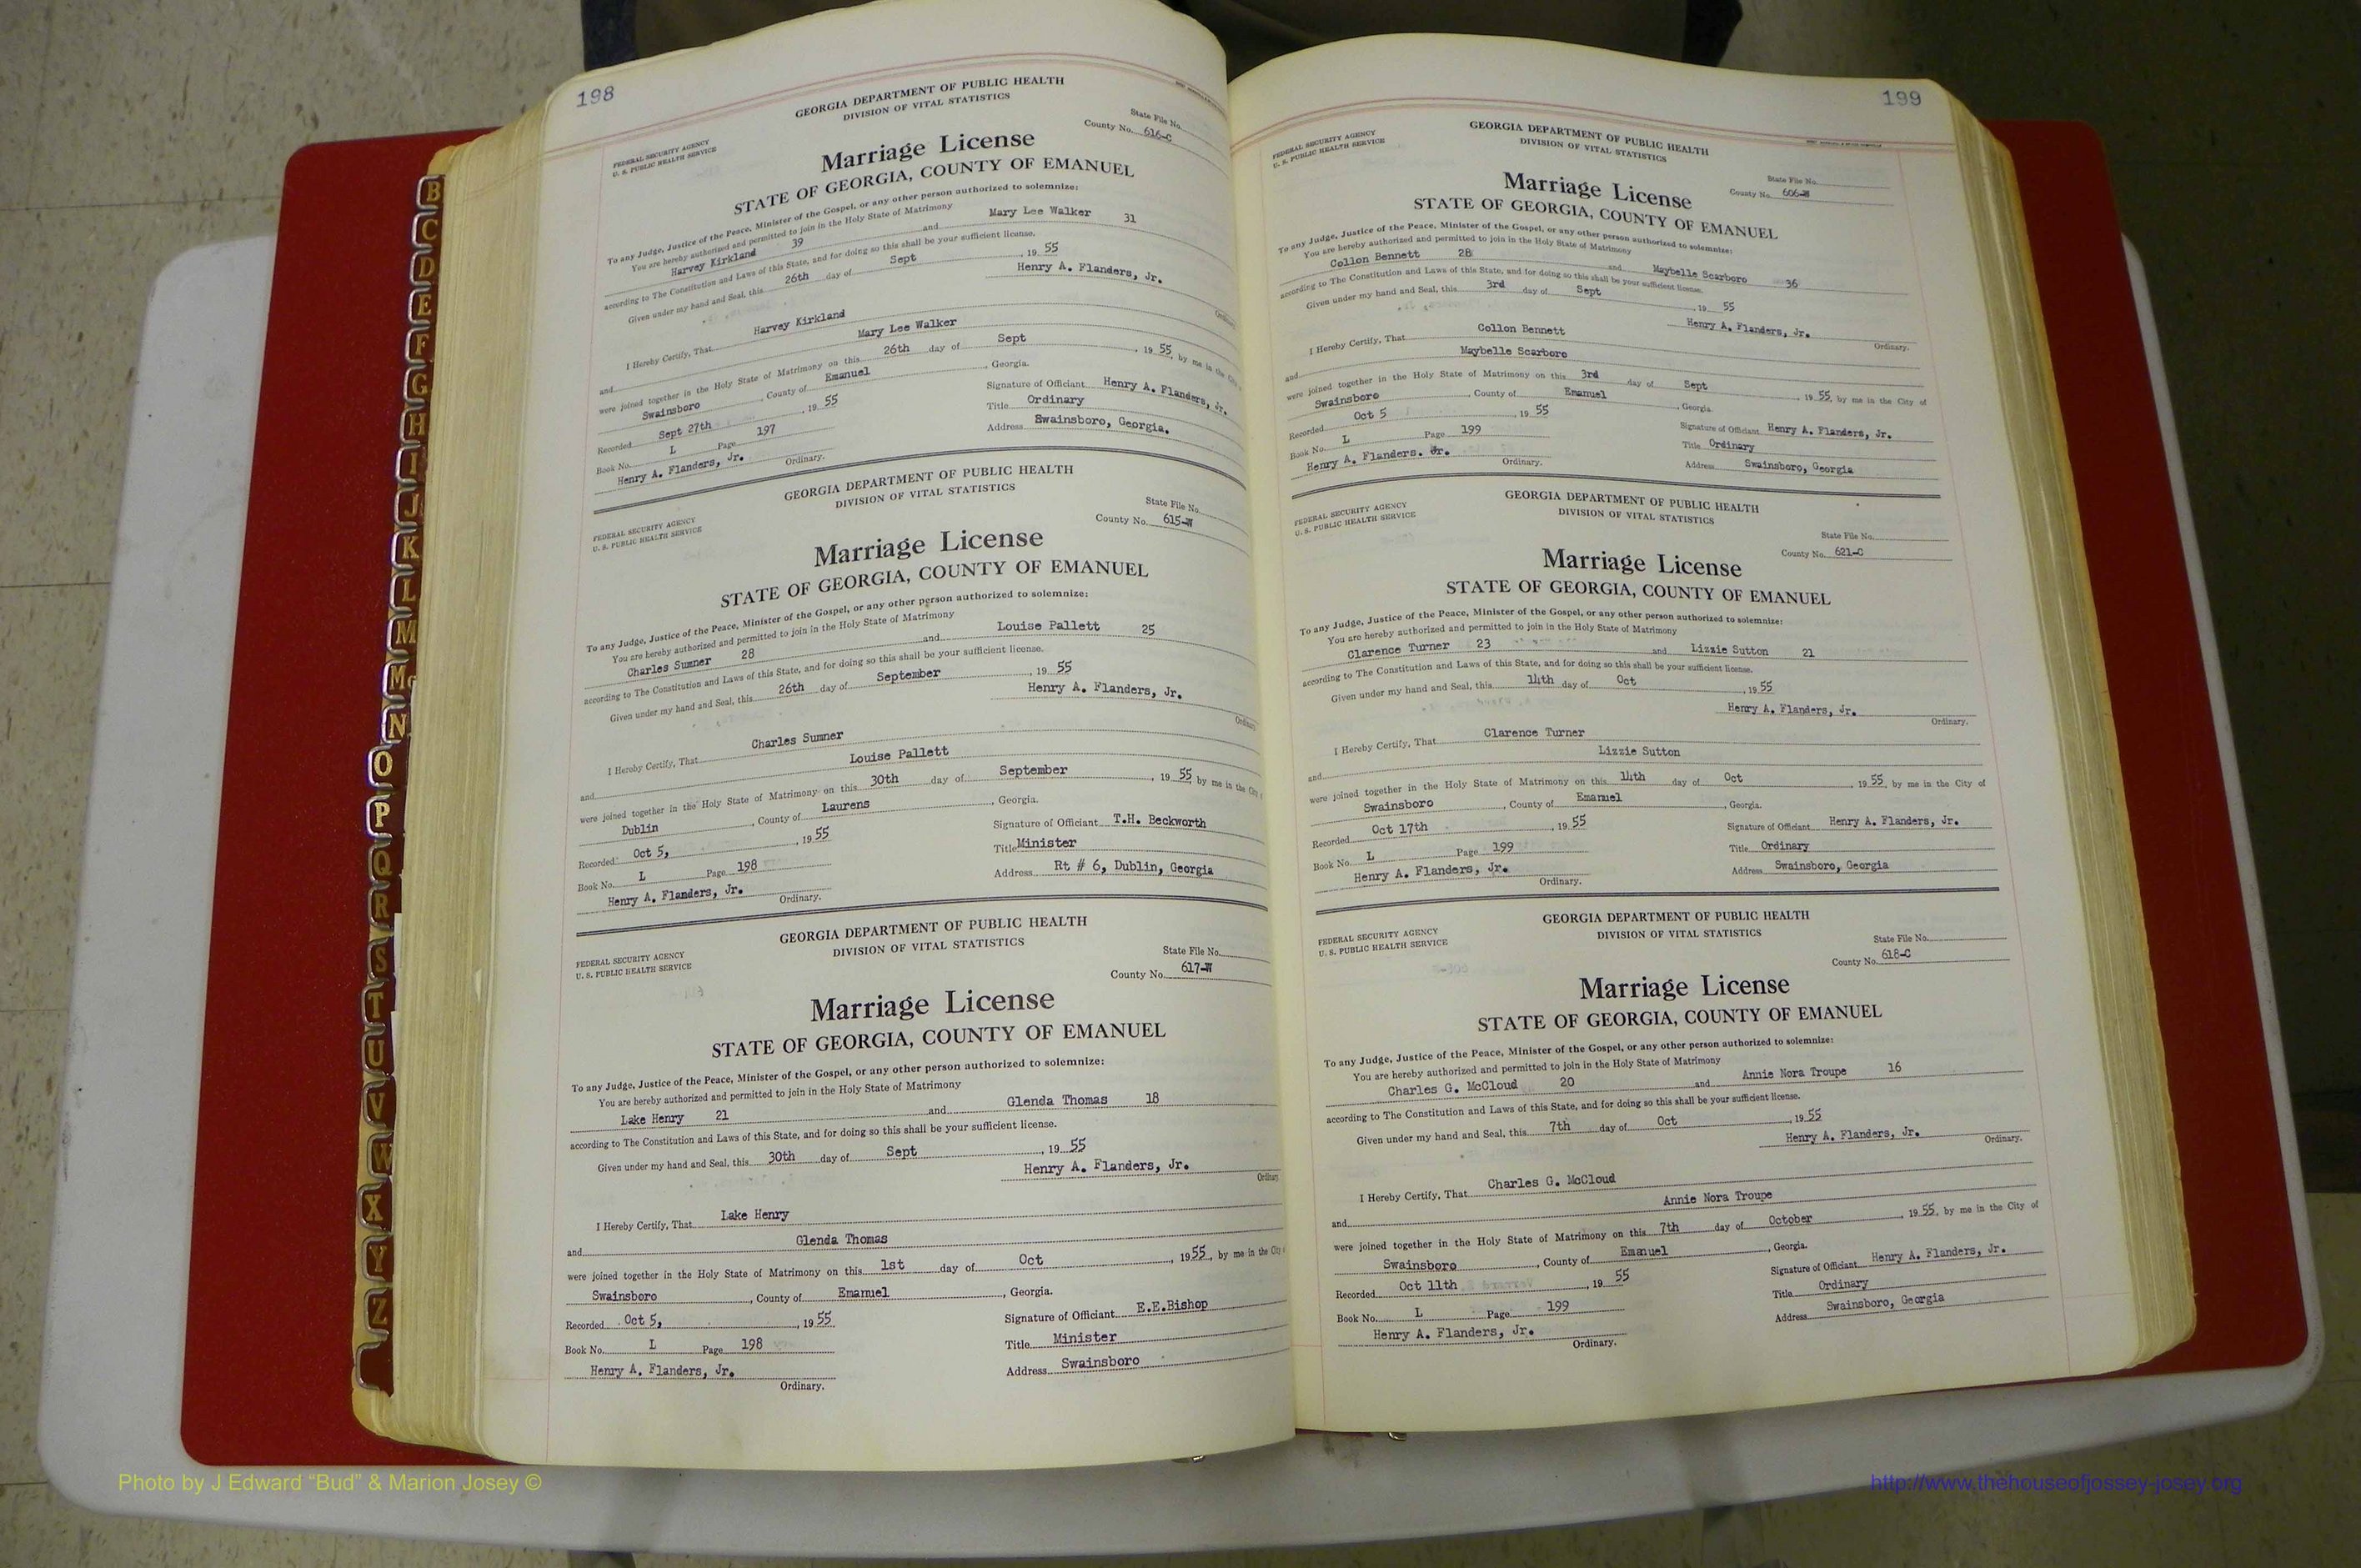 198
GEORGIA DEPARTMENT OF PUBLIC HEALTH
DIVISION OF VITAL STATISTICS
FEDERAL SECURITY AGENCY
U. S. PUBLIC HEALTH SERVICE
State File No.
County No. 616-C
Marriage License
STATE OF GEORGIA, COUNTY OF EMANUEL
To any Judge, Justice of the Peace, Minister of the Gospel, or any other person authorized to solemnize:
You are hereby authorized and permitted to join in the Holy State of Matrimony
Harvey Kirkland 39 and Mary Lee Walker 31
according to The Constitution and Laws of this State, and for doing so this shall be your sufficient license.
Given under my hand and Seal, this 26th day of Sept, 19 55
Henry A. Flanders, Jr.
Ordinary
I Hereby Certify, That Harvey Kirkland
and Mary Lee Walker
were joined together in the Holy State of Matrimony on this 26th day of Sept, 19 55, by me in the City
Swainsboro, County of Emanuel, Georgia.
Recorded Sept 27th, 19 55
Signature of Officiant Henry A. Flanders, Jr.
Book No. L Page 197
Title Ordinary
Henry A. Flanders, Jr.
Ordinary.
Address Swainsboro, Georgia.
GEORGIA DEPARTMENT OF PUBLIC HEALTH
DIVISION OF VITAL STATISTICS
FEDERAL SECURITY AGENCY
U. S. PUBLIC HEALTH SERVICE
State File No.
County No. 615-W
Marriage License
STATE OF GEORGIA, COUNTY OF EMANUEL
To any Judge, Justice of the Peace, Minister of the Gospel, or any other person authorized to solemnize:
You are hereby authorized and permitted to join in the Holy State of Matrimony
Charles Sumner 28 and Louise Pallett 25
according to The Constitution and Laws of this State, and for doing so this shall be your sufficient license.
Given under my hand and Seal, this 26th day of September, 19 55
Henry A. Flanders, Jr.
Ordinary
I Hereby Certify, That Charles Sumner
and Louise Pallett
were joined together in the Holy State of Matrimony on this 30th day of September, 19 55 by me in the City
Dublin, County of Laurens, Georgia.
Recorded Oct 5, 19 55
Signature of Officiant T.H. Beckworth
Book No. L Page 198
Title Minister
Henry A. Flanders, Jr.
Ordinary.
Address Rt # 6, Dublin, Georgia
GEORGIA DEPARTMENT OF PUBLIC HEALTH
DIVISION OF VITAL STATISTICS
FEDERAL SECURITY AGENCY
U. S. PUBLIC HEALTH SERVICE
State File No.
County No. 617-W
Marriage License
STATE OF GEORGIA, COUNTY OF EMANUEL
To any Judge, Justice of the Peace, Minister of the Gospel, or any other person authorized to solemnize:
You are hereby authorized and permitted to join in the Holy State of Matrimony
Lake Henry 21 and Glenda Thomas 18
according to The Constitution and Laws of this State, and for doing so this shall be your sufficient license.
Given under my hand and Seal, this 30th day of Sept, 19 55
Henry A. Flanders, Jr.
Ordinary
I Hereby Certify, That Lake Henry
and Glenda Thomas
were joined together in the Holy State of Matrimony on this 1st day of Oct, 19 55, by me in the City
Swainsboro, County of Emanuel, Georgia.
Recorded Oct 5, 19 55
Signature of Officiant E.E.Bishop
Book No. L Page 198
Title Minister
Henry A. Flanders, Jr.
Ordinary.
Address Swainsboro
199
GEORGIA DEPARTMENT OF PUBLIC HEALTH
DIVISION OF VITAL STATISTICS
FEDERAL SECURITY AGENCY
U. S. PUBLIC HEALTH SERVICE
State File No.
County No. 606-W
Marriage License
STATE OF GEORGIA, COUNTY OF EMANUEL
To any Judge, Justice of the Peace, Minister of the Gospel, or any other person authorized to solemnize:
You are hereby authorized and permitted to join in the Holy State of Matrimony
Collon Bennett 28 and Maybelle Scarboro 36
according to The Constitution and Laws of this State, and for doing so this shall be your sufficient license.
Given under my hand and Seal, this 3rd day of Sept, 19 55
Henry A. Flanders, Jr.
Ordinary.
I Hereby Certify, That Collon Bennett
and Maybelle Scarboro
were joined together in the Holy State of Matrimony on this 3rd day of Sept, 19 55, by me in the City of
Swainsboro, County of Emanuel, Georgia.
Recorded Oct 5, 19 55
Signature of Officiant Henry A. Flanders, Jr.
Book No. L Page 199
Title Ordinary
Henry A. Flanders. Jr.
Ordinary.
Address Swainsboro, Georgia
GEORGIA DEPARTMENT OF PUBLIC HEALTH
DIVISION OF VITAL STATISTICS
FEDERAL SECURITY AGENCY
U. S. PUBLIC HEALTH SERVICE
State File No.
County No. 621-C
Marriage License
STATE OF GEORGIA, COUNTY OF EMANUEL
To any Judge, Justice of the Peace, Minister of the Gospel, or any other person authorized to solemnize:
You are hereby authorized and permitted to join in the Holy State of Matrimony
Clarence Turner 23 and Lizzie Sutton 21
according to The Constitution and Laws of this State, and for doing so this shall be your sufficient license.
Given under my hand and Seal, this 14th day of Oct, 19 55
Henry A. Flanders, Jr.
Ordinary.
I Hereby Certify, That Clarence Turner
and Lizzie Sutton
were joined together in the Holy State of Matrimony on this 14th day of Oct, 19 55, by me in the City of
Swainsboro, County of Emanuel, Georgia.
Recorded Oct 17th, 19 55
Signature of Officiant Henry A. Flanders, Jr.
Book No. L Page 199
Title Ordinary
Henry A. Flanders, Jr.
Ordinary.
Address Swainsboro, Georgia
GEORGIA DEPARTMENT OF PUBLIC HEALTH
DIVISION OF VITAL STATISTICS
FEDERAL SECURITY AGENCY
U. S. PUBLIC HEALTH SERVICE
State File No.
County No. 618-C
Marriage License
STATE OF GEORGIA, COUNTY OF EMANUEL
To any Judge, Justice of the Peace, Minister of the Gospel, or any other person authorized to solemnize:
You are hereby authorized and permitted to join in the Holy State of Matrimony
Charles G. McCloud 20 and Annie Nora Troupe 16
according to The Constitution and Laws of this State, and for doing so this shall be your sufficient license.
Given under my hand and Seal, this 7th day of Oct, 19 55
Henry A. Flanders, Jr.
Ordinary.
I Hereby Certify, That Charles G. McCloud
and Annie Nora Troupe
were joined together in the Holy State of Matrimony on this 7th day of October, 19 55, by me in the City of
Swainsboro, County of Emanuel, Georgia.
Recorded Oct 11th, 19 55
Signature of Officiant Henry A. Flanders, Jr.
Book No. L Page 199
Title Ordinary
Henry A. Flanders, Jr.
Ordinary.
Address Swainsboro, Georgia
B
C
D
E
F
G
H
I
J
K
L
M
Mc
N
O
P
Q
R
S
T
U
V
W
X
Y
Z
Photo by J Edward “Bud” & Marion Josey ©
http://www.thehouseofjossey-josey.org